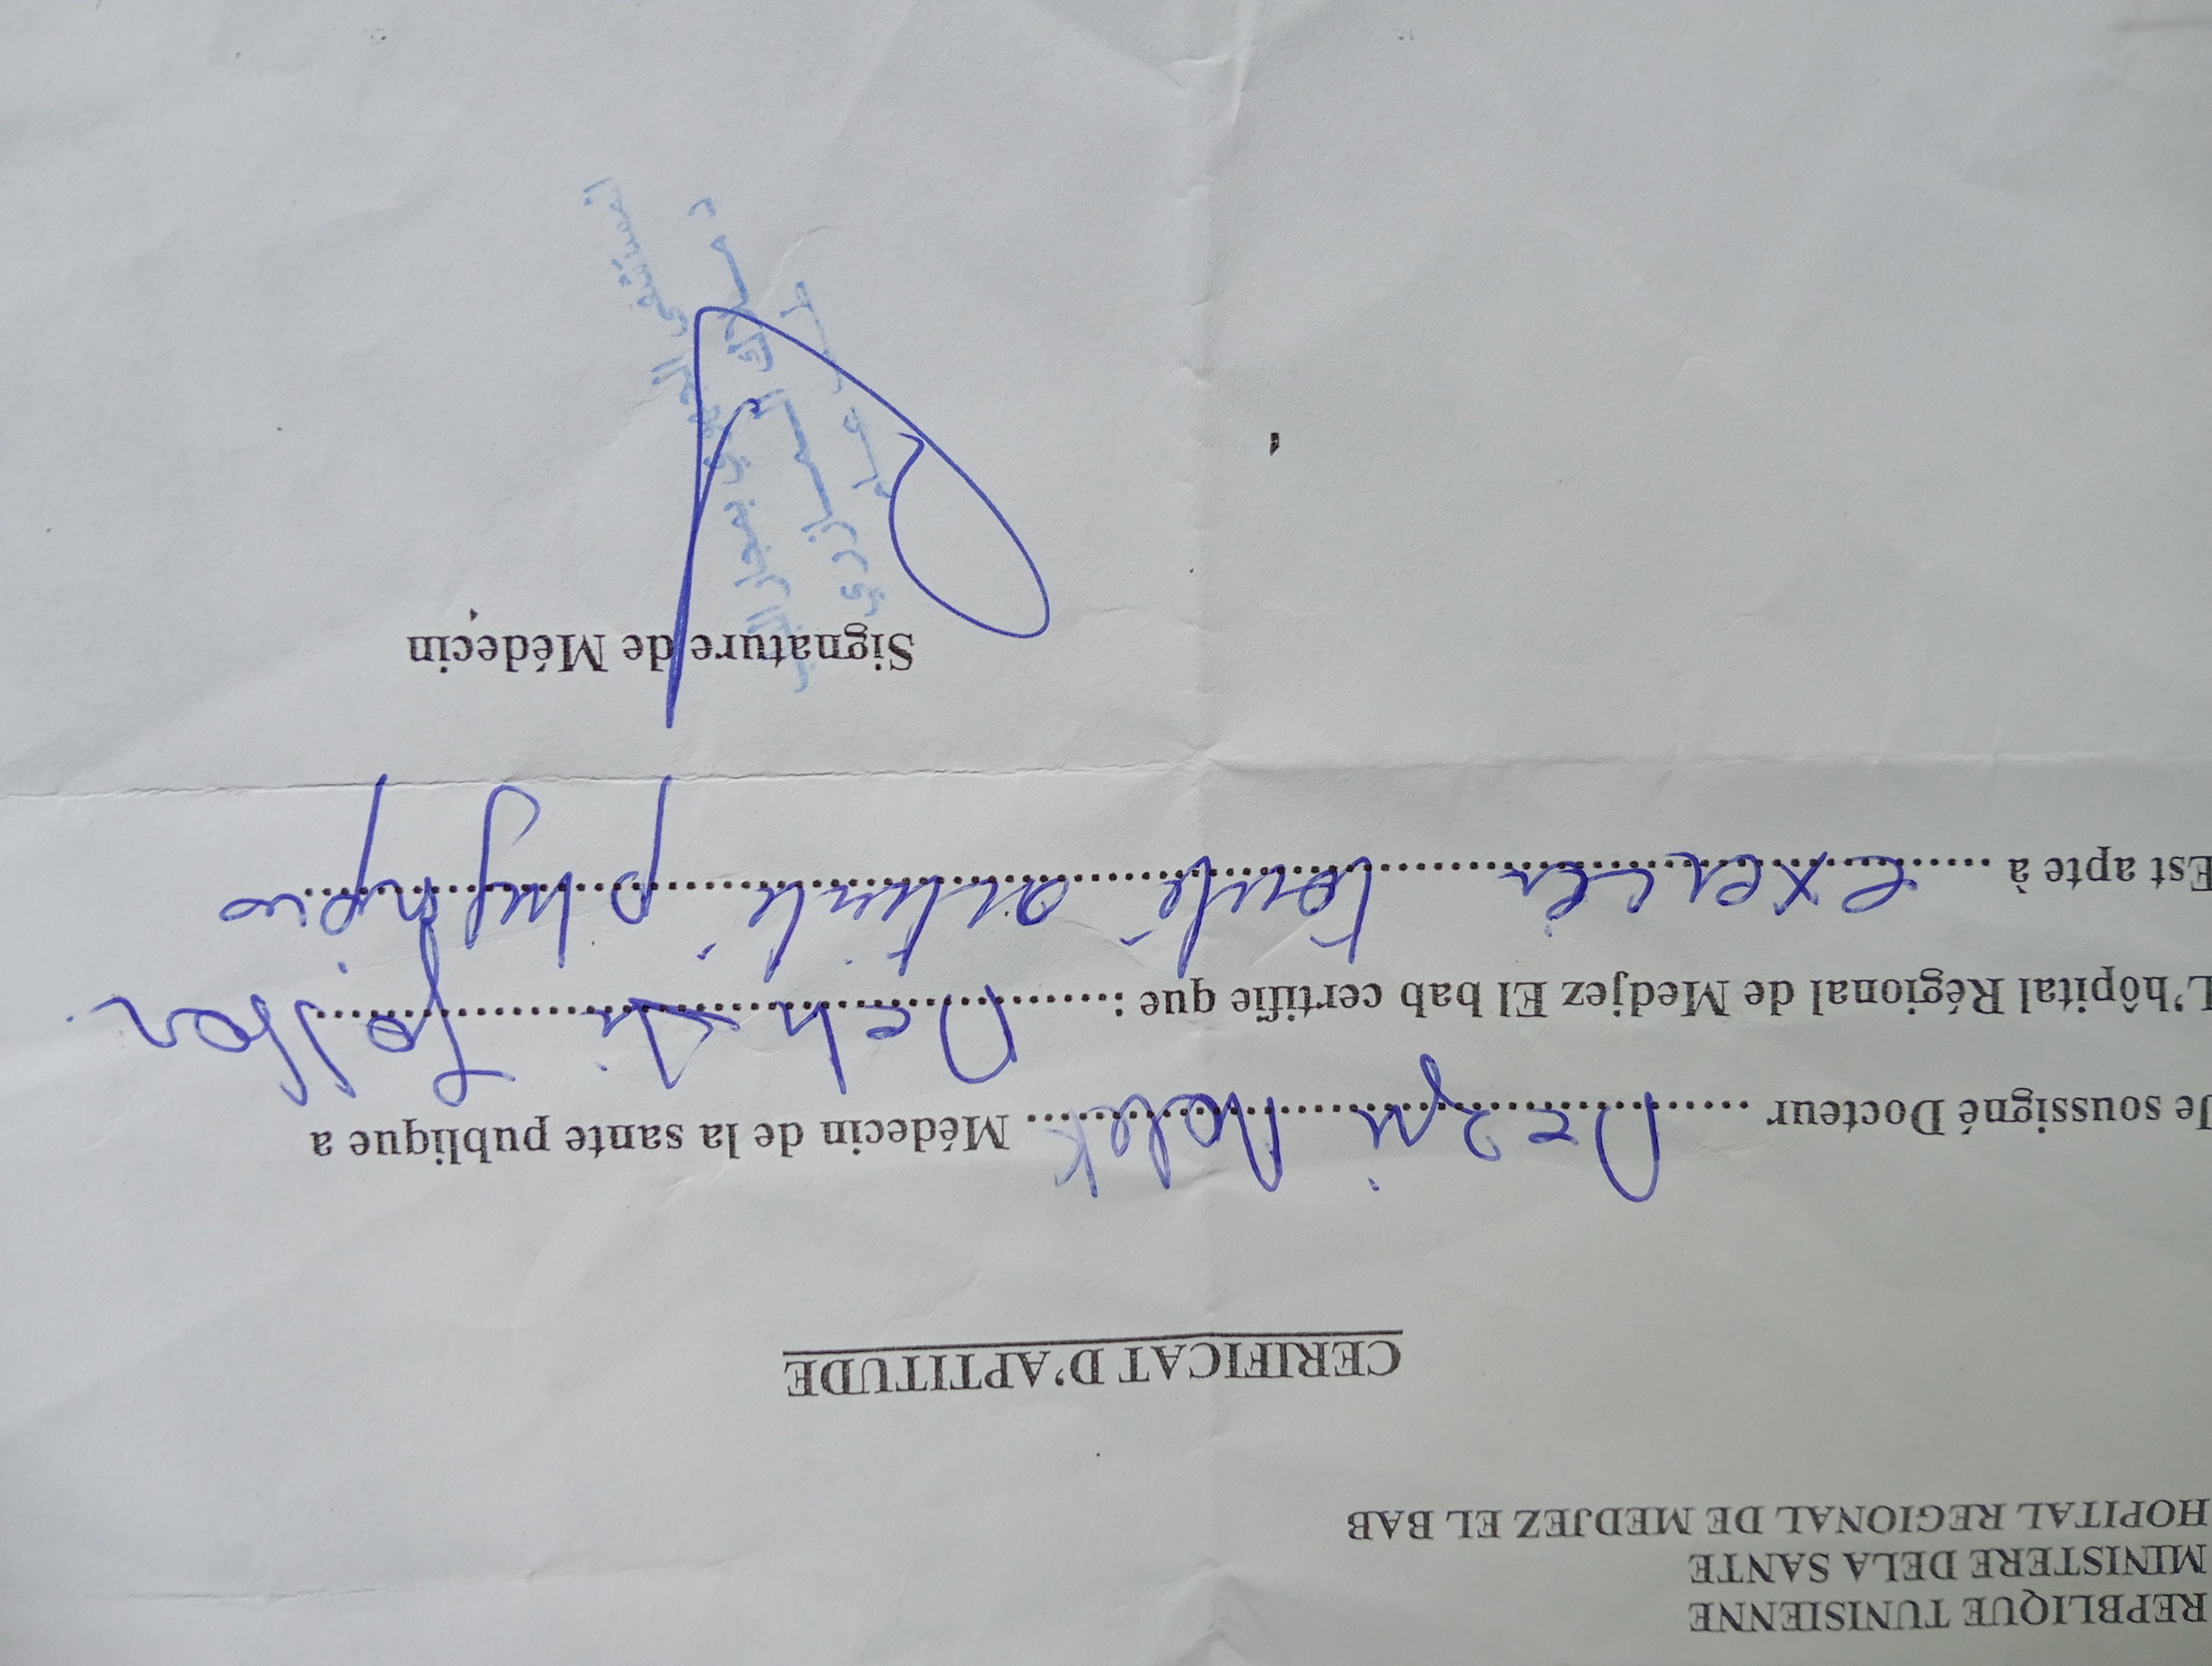 REPBLIQUE TUNISIENNE
MINISTERE DELA SANTE
HOPITAL REGIONAL DE MEDJEZ EL BAB
CERIFICAT D'APTITUDE
Je soussigné Docteur ........ Malek ........ Médecin de la sante publique a
L'hôpital Régional de Medjez El bab certifie que : ........
Est apte à ........ exercer toute activité physique ........
Signature de Médecin